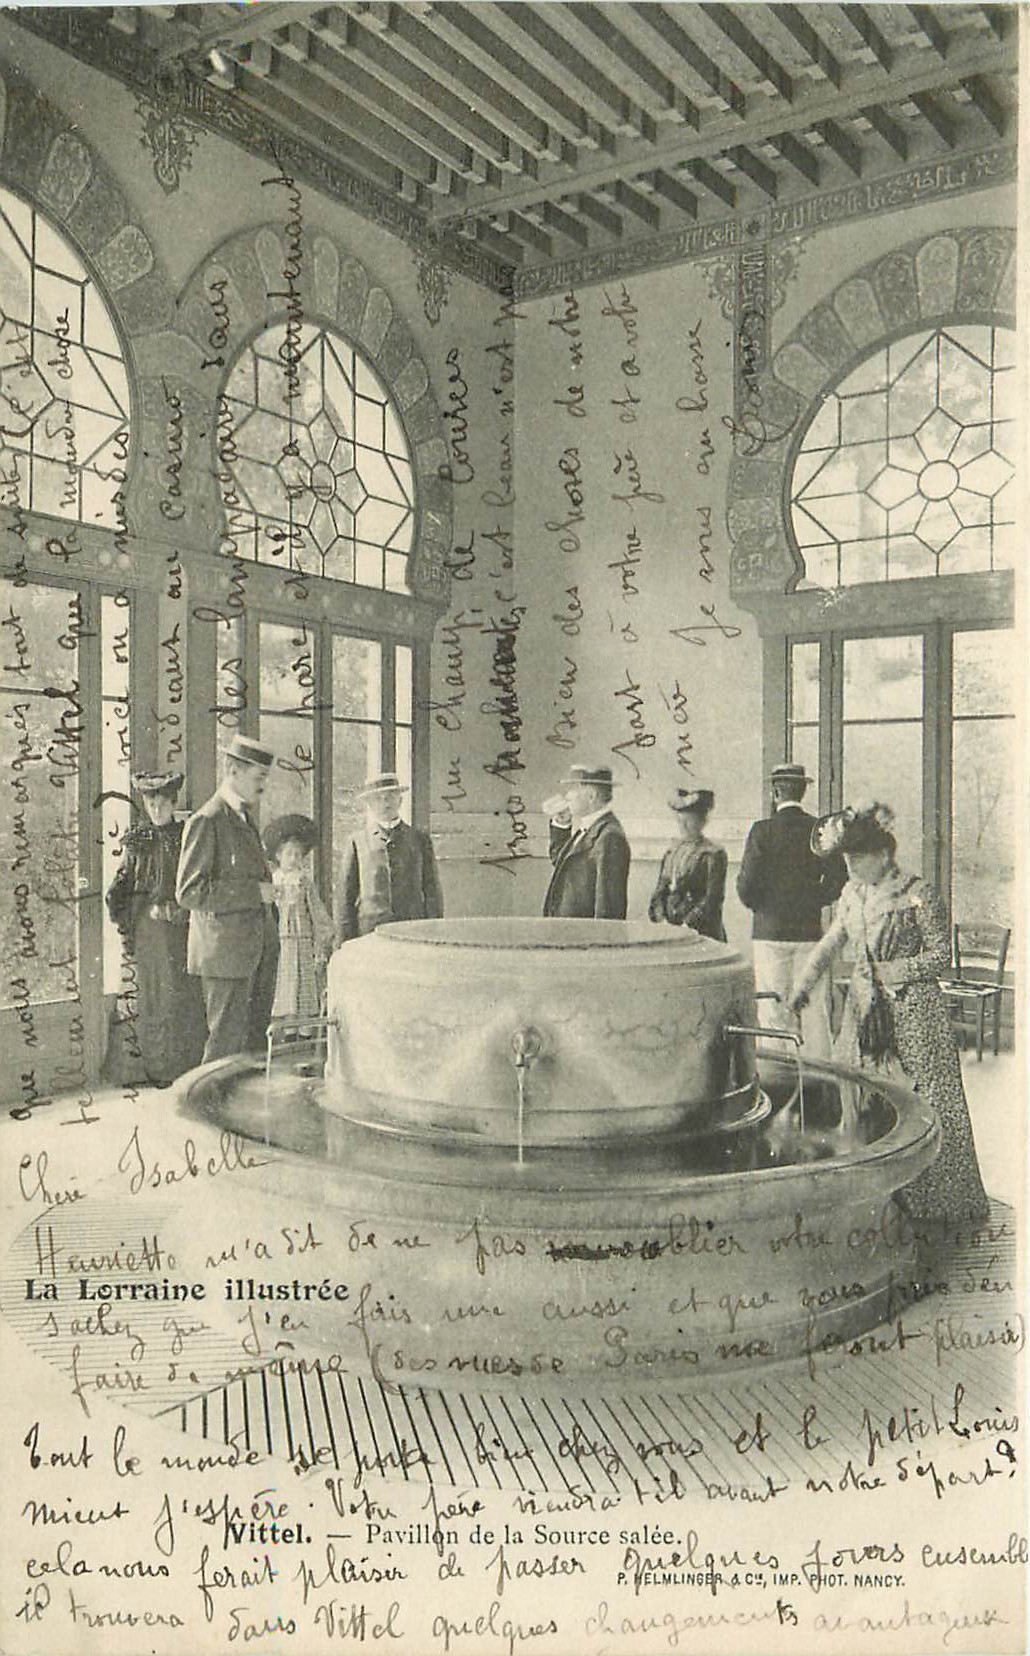 Chère Isabelle
Henriette m'a dit de ne pas oublier votre collection
La Lorraine illustrée
sachez que j'en fais une aussi et que vous prie d'en
faire de même (des vues de Paris me feront plaisir)
Tout le monde se porte bien chez vous et le petit Louis
mieux j'espère. Votre père viendra-t-il avant notre départ?
Vittel. — Pavillon de la Source salée.
cela nous ferait plaisir de passer quelques jours ensemble
P. HELMLINGER & Cie, IMP. PHOT. NANCY.
il trouvera dans Vittel quelques changements avantageux
que nous avons remarqués tout de suite, c'est
tellement Vittel que la moindre chose
y est remarquée) ici on a mis des
rideaux au Casino
des lampadaires dans
le parc et il y a maintenant
un chauf. de courses
trois c'est beau n'est pas
Bien des choses de notre
part à votre père et a votre
mère Je vous embrasse
Louis